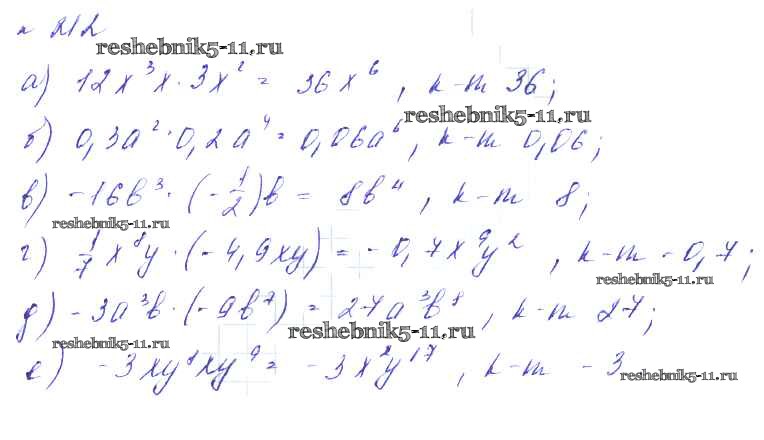 № 212
reshebnik5-11.ru
а) 12x³x · 3x² = 36x⁶, к-т 36;
reshebnik5-11.ru
б) 0,3a² · 0,2a⁴ = 0,06a⁶, к-т 0,06;
в) -16b³ · (-1/2)b = 8b⁴, к-т 8;
reshebnik5-11.ru
г) 1/7 x⁸y · (-4,9xy) = -0,7x⁹y², к-т -0,7;
reshebnik5-11.ru
д) -3a³b · (-9b⁷) = 27a³b⁸, к-т 27;
reshebnik5-11.ru
reshebnik5-11.ru
е) -3xy⁸xy⁹ = -3x²y¹⁷, к-т -3
reshebnik5-11.ru